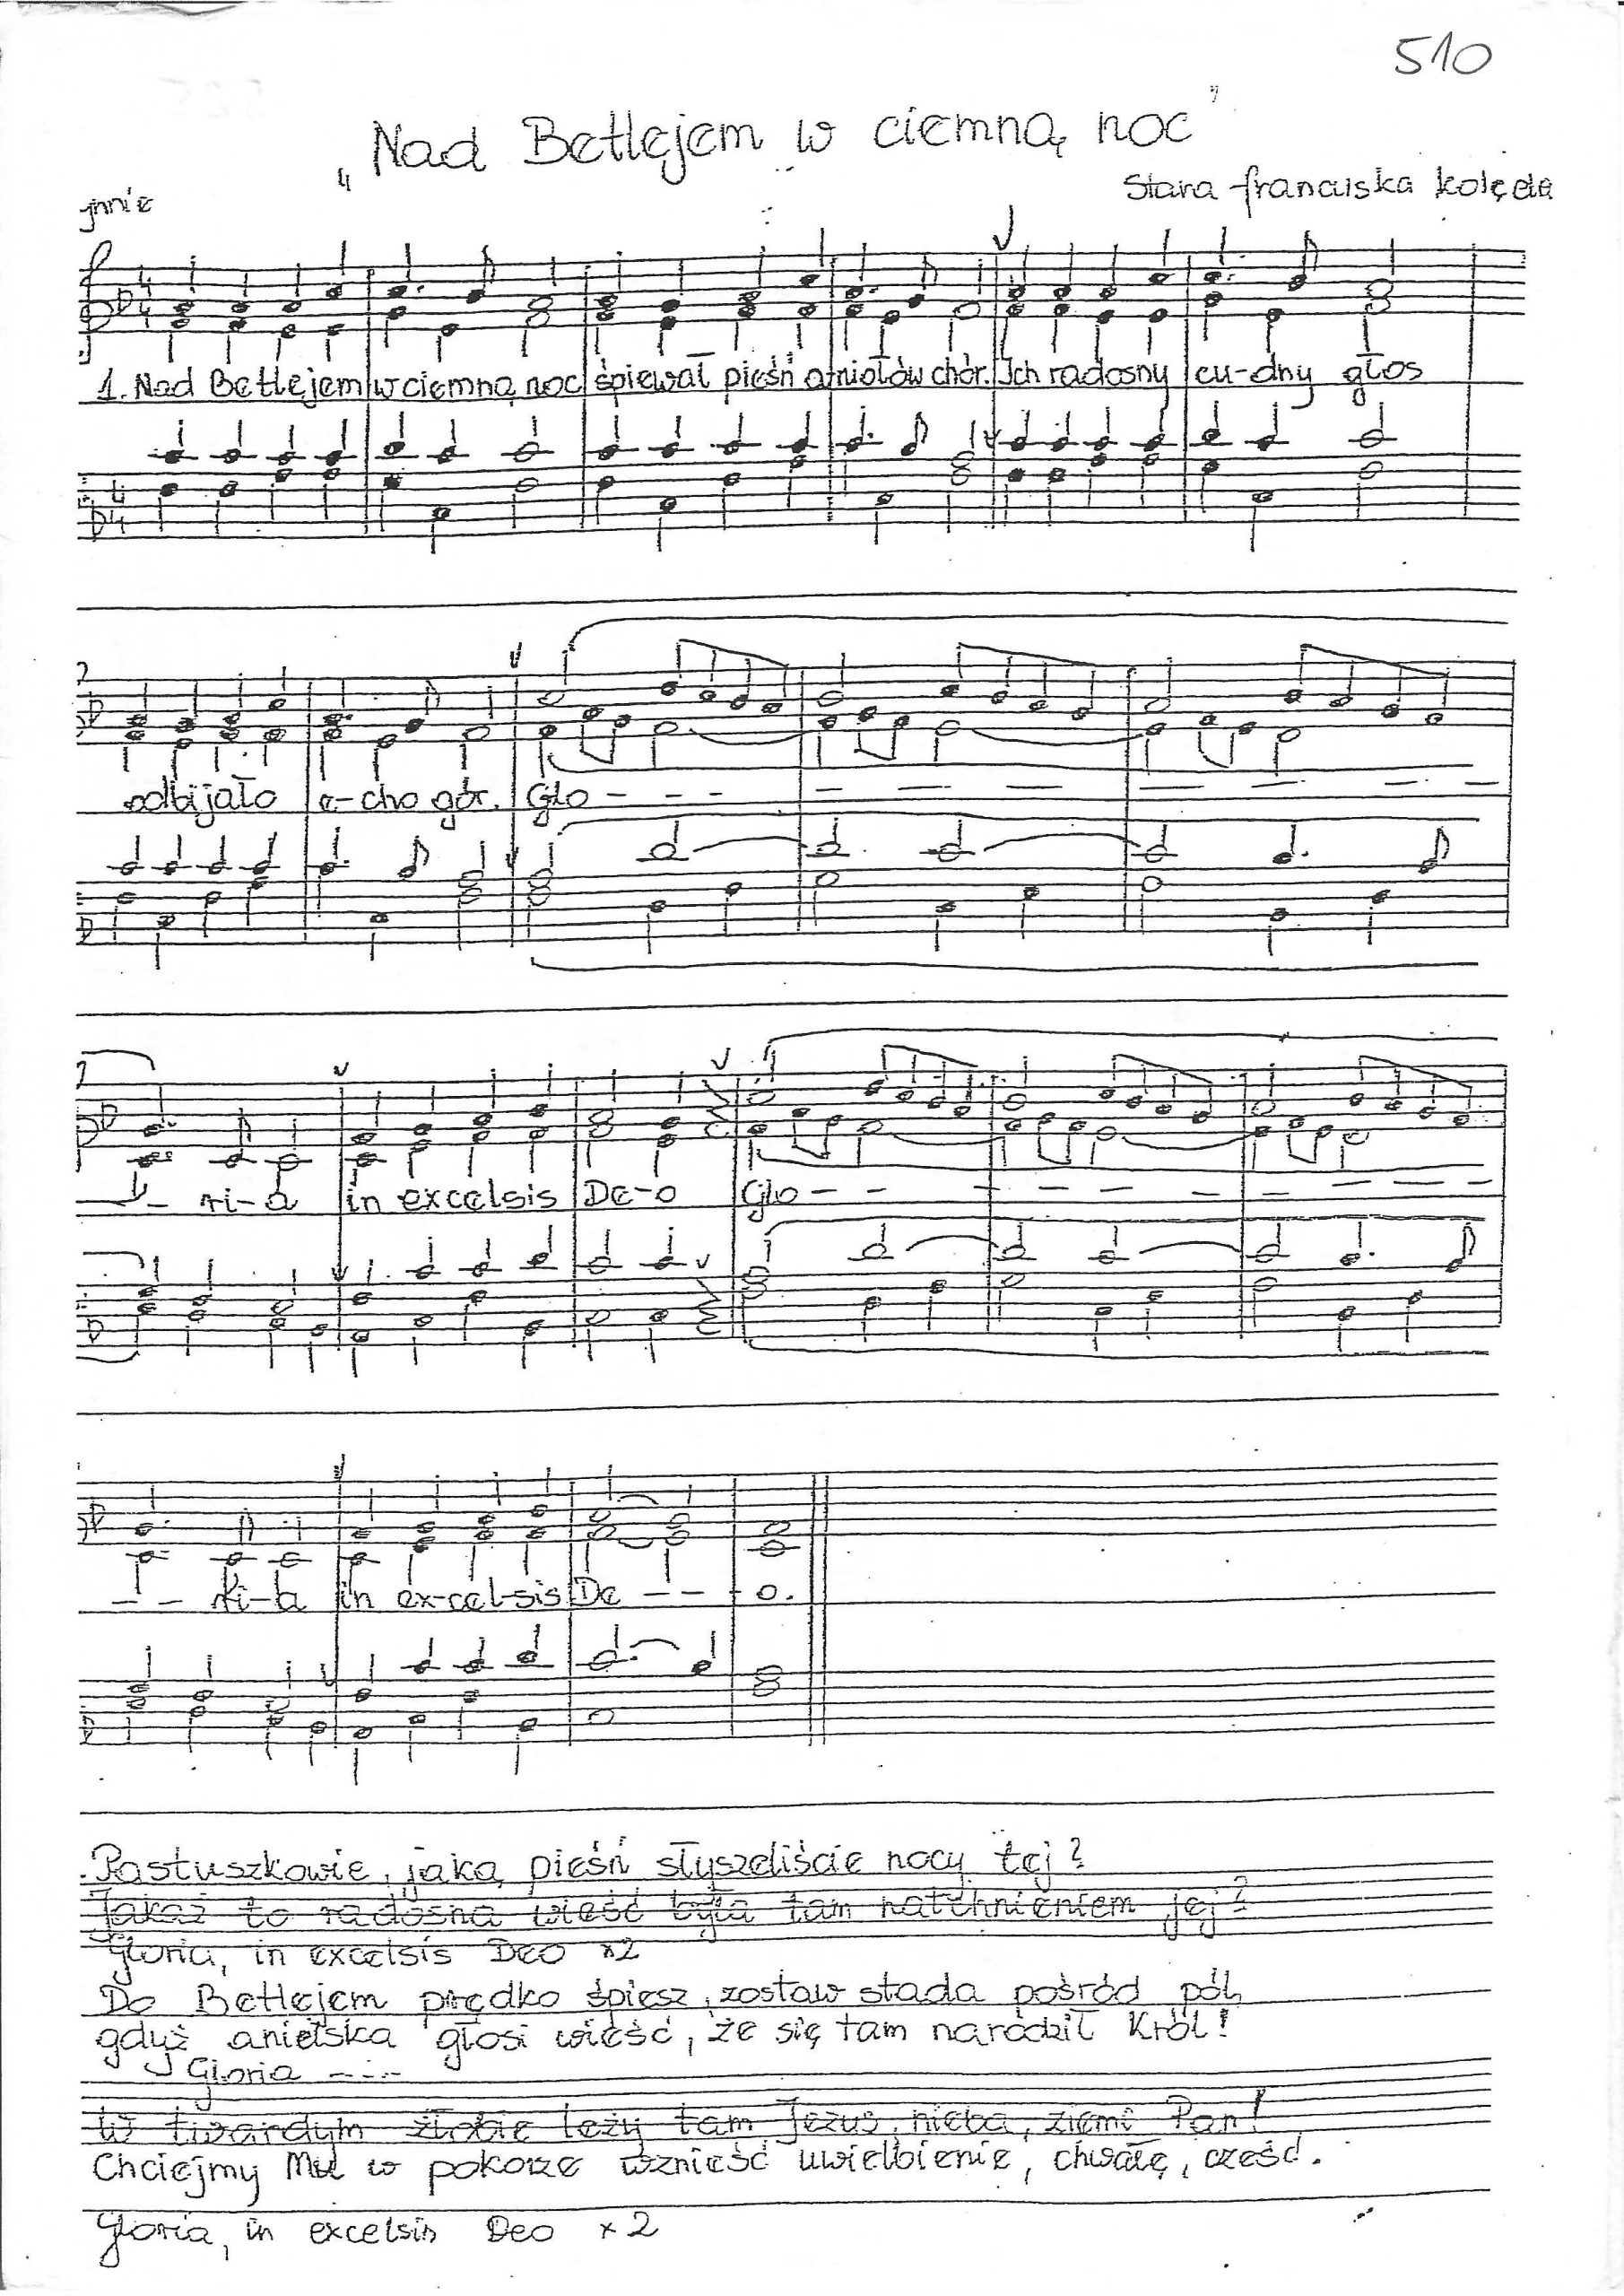 510
„Nad Betlejem w ciemną noc”
Stara francuska kolęda
1. Nad Betlejem w ciemną noc śpiewał pieśń aniołów chór. Ich radosny cu-dny głos
odbijało e-cho gór. Glo - - - -
- ri-a in excelsis De-o Glo - - -
- - ri-a in ex-cel-sis De - - - o.
Pastuszkowie, jaką pieśń słyszeliście nocy tej?
Jakaż to radosna wieść była tam natchnieniem jej?
Gloria, in excelsis Deo x2
Do Betlejem prędko śpiesz, zostaw stada pośród pól,
gdyż anielska głosi wieść, że się tam narodził Król!
Gloria ----
W twardym żłobie leży tam Jezus, nieba, ziemi Pan!
Chciejmy Mu w pokorze wznieść uwielbienie, chwałę, cześć.
Gloria, in excelsis Deo x2